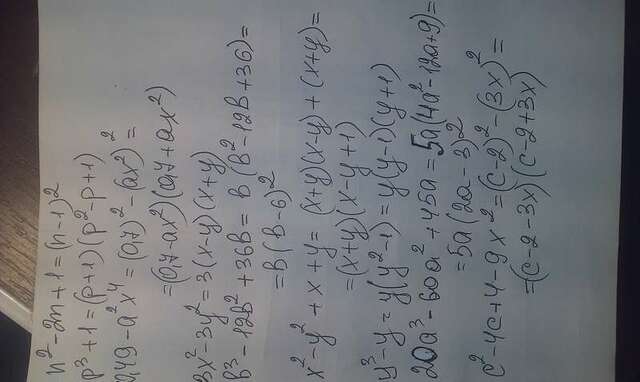 n² - 2n + 1 = (n - 1)²
p³ + 1 = (p + 1)(p² - p + 1)
0,49 - a²x⁴ = (0,7)² - (ax²)² =
= (0,7 - ax²)(0,7 + ax²)
3x² - 3y² = 3(x - y)(x + y)
b³ - 12b² + 36b = b(b² - 12b + 36) =
= b(b - 6)²
x² - y² + x + y = (x + y)(x - y) + (x + y) =
= (x + y)(x - y + 1)
y³ - y = y(y² - 1) = y(y - 1)(y + 1)
20a³ - 60a² + 45a = 5a(4a² - 12a + 9) =
= 5a(2a - 3)²
c² - 4c + 4 - 9x² = (c - 2)² - (3x)² =
= (c - 2 - 3x)(c - 2 + 3x)